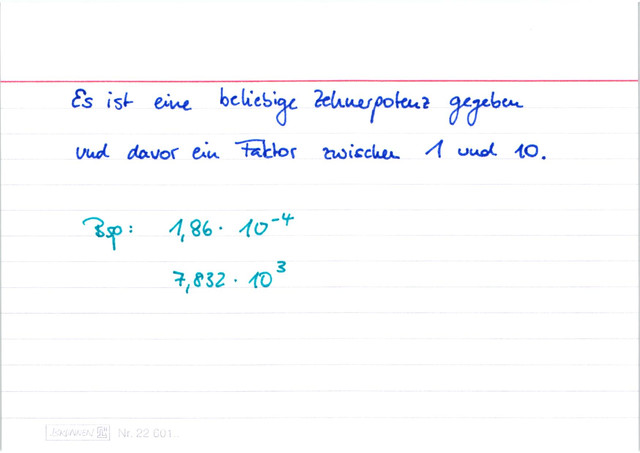 Es ist eine beliebige Zehnerpotenz gegeben
und davor ein Faktor zwischen 1 und 10.
Bsp: 1,86 · 10⁻⁴
7,832 · 10³
BRUNNEN Nr. 22 601